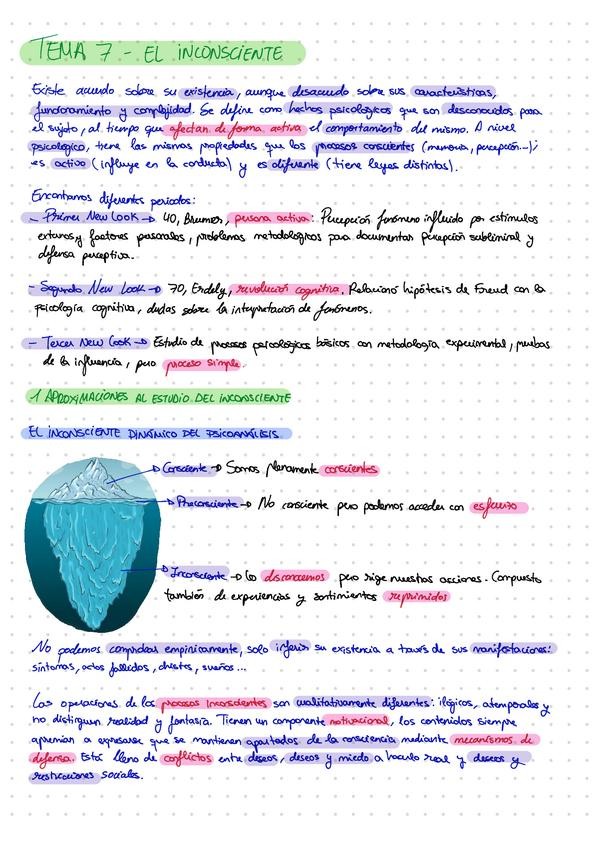 TEMA 7 - EL INCONSCIENTE
Existe acuerdo sobre su existencia, aunque desacuerdo sobre sus características,
funcionamiento y complejidad. Se define como hechos psicológicos que son desconocidos para
el sujeto, al tiempo que afectan de forma activa el comportamiento del mismo. A nivel
psicológico, tiene las mismas propiedades que los procesos conscientes (memoria, percepción...);
es activo (influye en la conducta) y es diferente (tiene leyes distintas).
Encontramos diferentes periodos:
- Primer New Look → 40, Bruner, persona activa: Percepción fenómeno influido por estímulos
externos y factores personales, problemas metodológicos para documentar percepción subliminal y
defensa perceptiva.
- Segundo New Look → 70, Erdely, revolución cognitiva. Relacionó hipótesis de Freud con la
psicología cognitiva, dudas sobre la interpretación de fenómenos.
- Tercer New Look → Estudio de procesos psicológicos básicos con metodología experimental, pruebas
de la influencia, pero proceso simple.
1 APROXIMACIONES AL ESTUDIO DEL INCONSCIENTE
EL INCONSCIENTE DINÁMICO DEL PSICOANÁLISIS
Consciente → Somos plenamente conscientes
Preconsciente → No consciente pero podemos acceder con esfuerzo
Inconsciente → Lo desconocemos pero rige nuestras acciones. Compuesto
también de experiencias y sentimientos reprimidos
No podemos comprobar empíricamente, solo inferir su existencia a través de sus manifestaciones:
síntomas, actos fallidos, chistes, sueños...
Las operaciones de los procesos inconscientes son cualitativamente diferentes: ilógicos, atemporales y
no distinguen realidad y fantasía. Tienen un componente motivacional, los contenidos siempre
a expresarse que se mantienen apartados de la consciencia mediante mecanismos de
defensa. Está lleno de conflictos entre deseos, deseos y miedo a hacerlo real y deseos y
restricciones sociales.